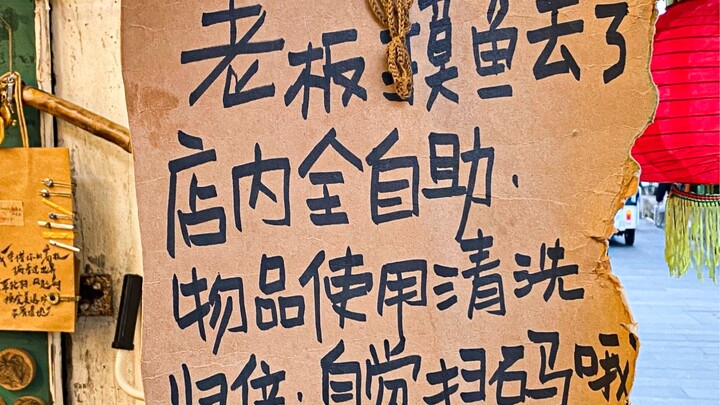 老板摸鱼去了
店内全自助.
物品使用清洗
归位.自觉扫码哦